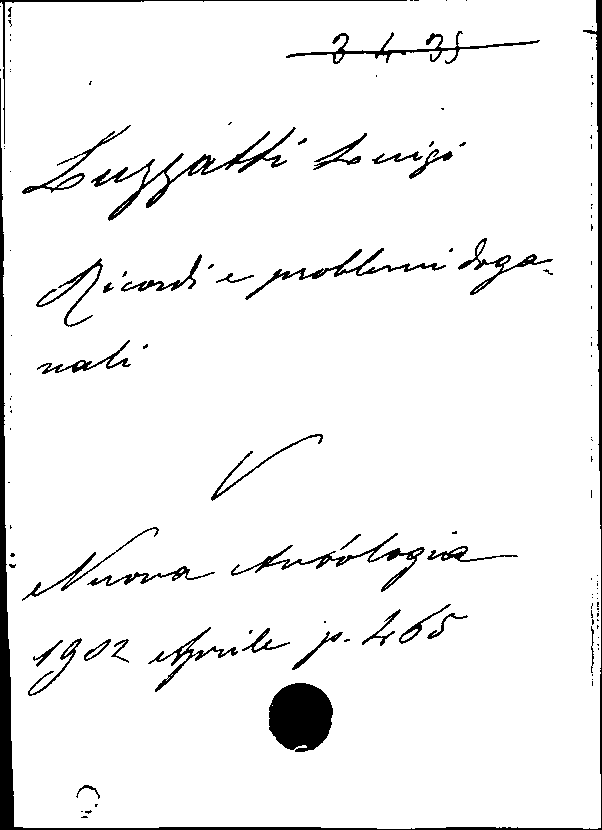 3 4. 35
Luzzatti Luigi
Ricordi e problemi doga-
nali
V
Nuova Antologia
1902 Aprile p. 465